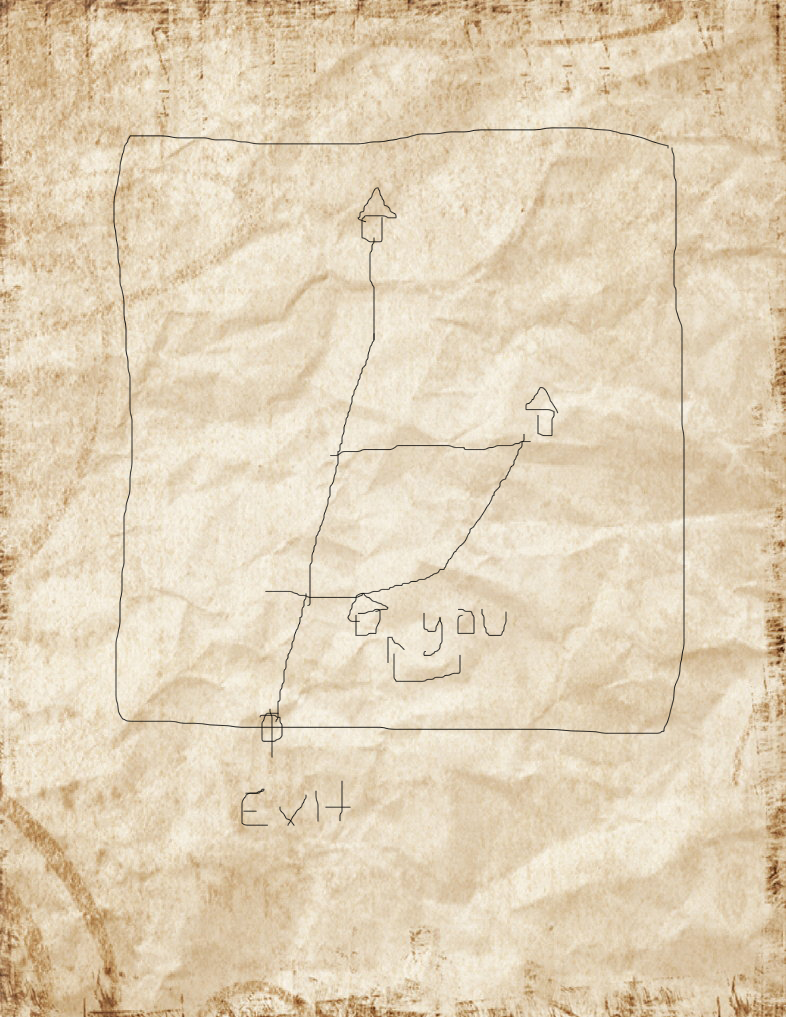 you
Exit